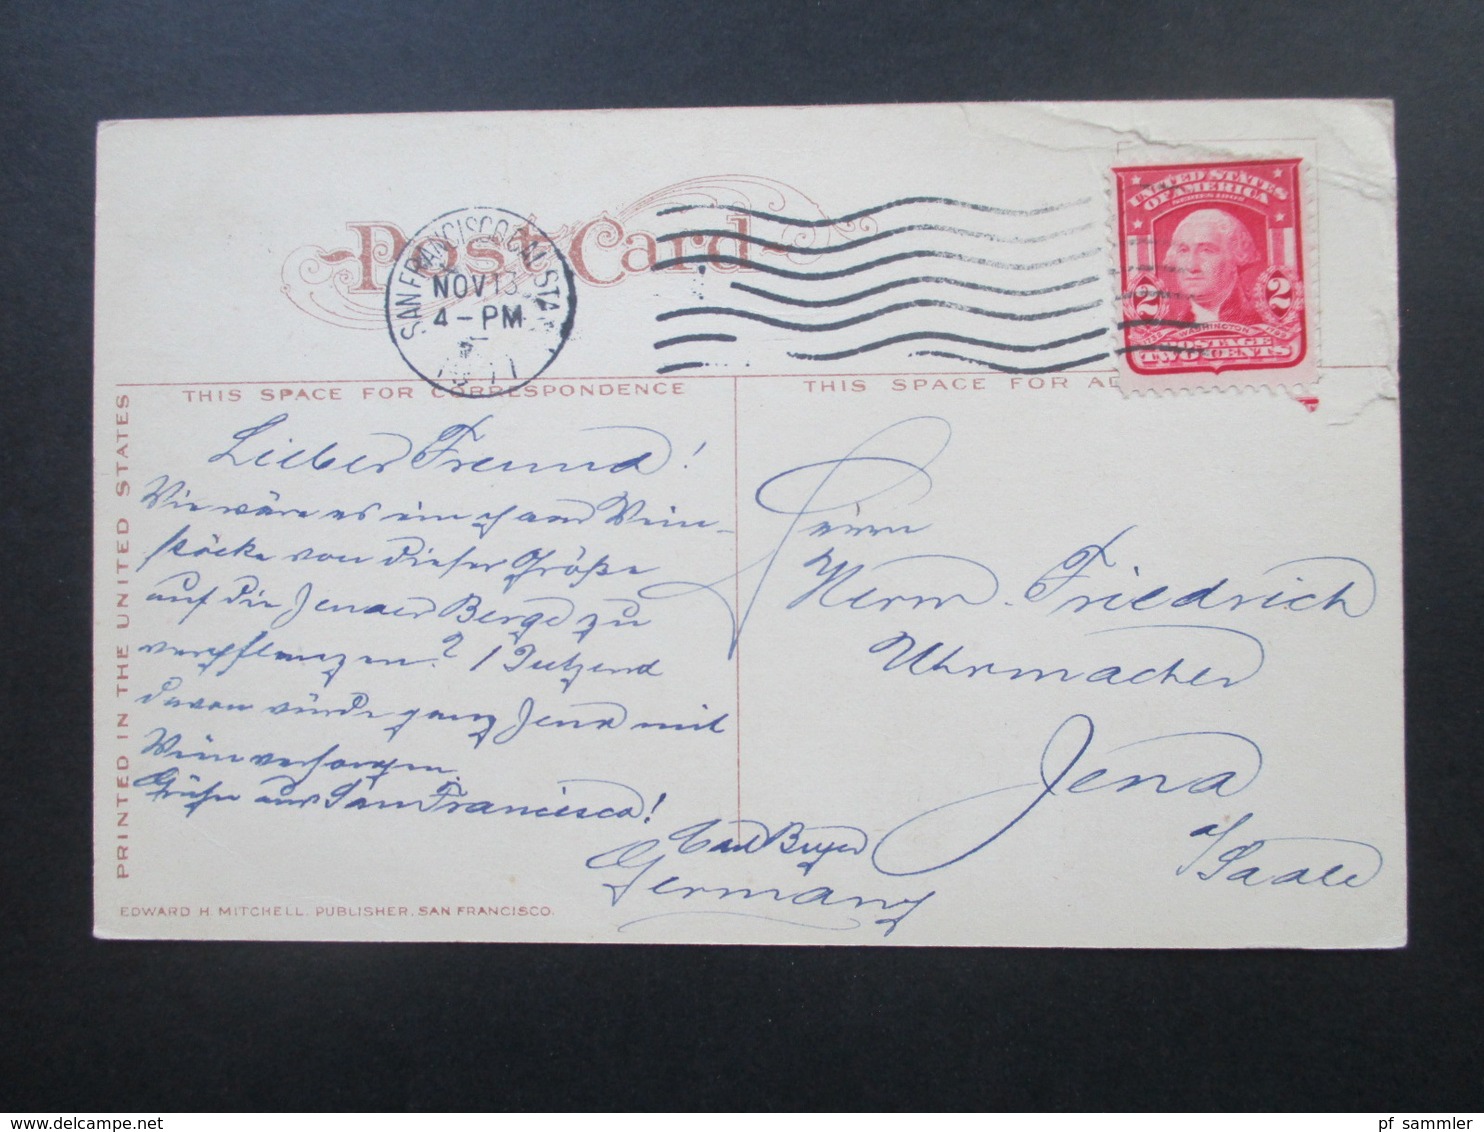 Post Card
SAN FRANCISCO CAL. STA.
NOV 13
4 - PM
UNITED STATES
OF AMERICA
SERIES 1902
2 2
WASHINGTON
POSTAGE
TWO CENTS
THIS SPACE FOR CORRESPONDENCE
THIS SPACE FOR AD
PRINTED IN THE UNITED STATES
Lieber Freund!
Wie wäre es ein paar Wein-
stöcke von dieser Größe
auf die Jenaer Berge zu
verpflanzen? 1 Dutzend
davon würde ganz Jena mit
Wein versorgen.
Grüße aus San Francisco!
Carl
Herrn
Herm. Friedrich
Uhrmacher
Jena
a/Saale
Germany
EDWARD H. MITCHELL, PUBLISHER, SAN FRANCISCO.
pf sammler